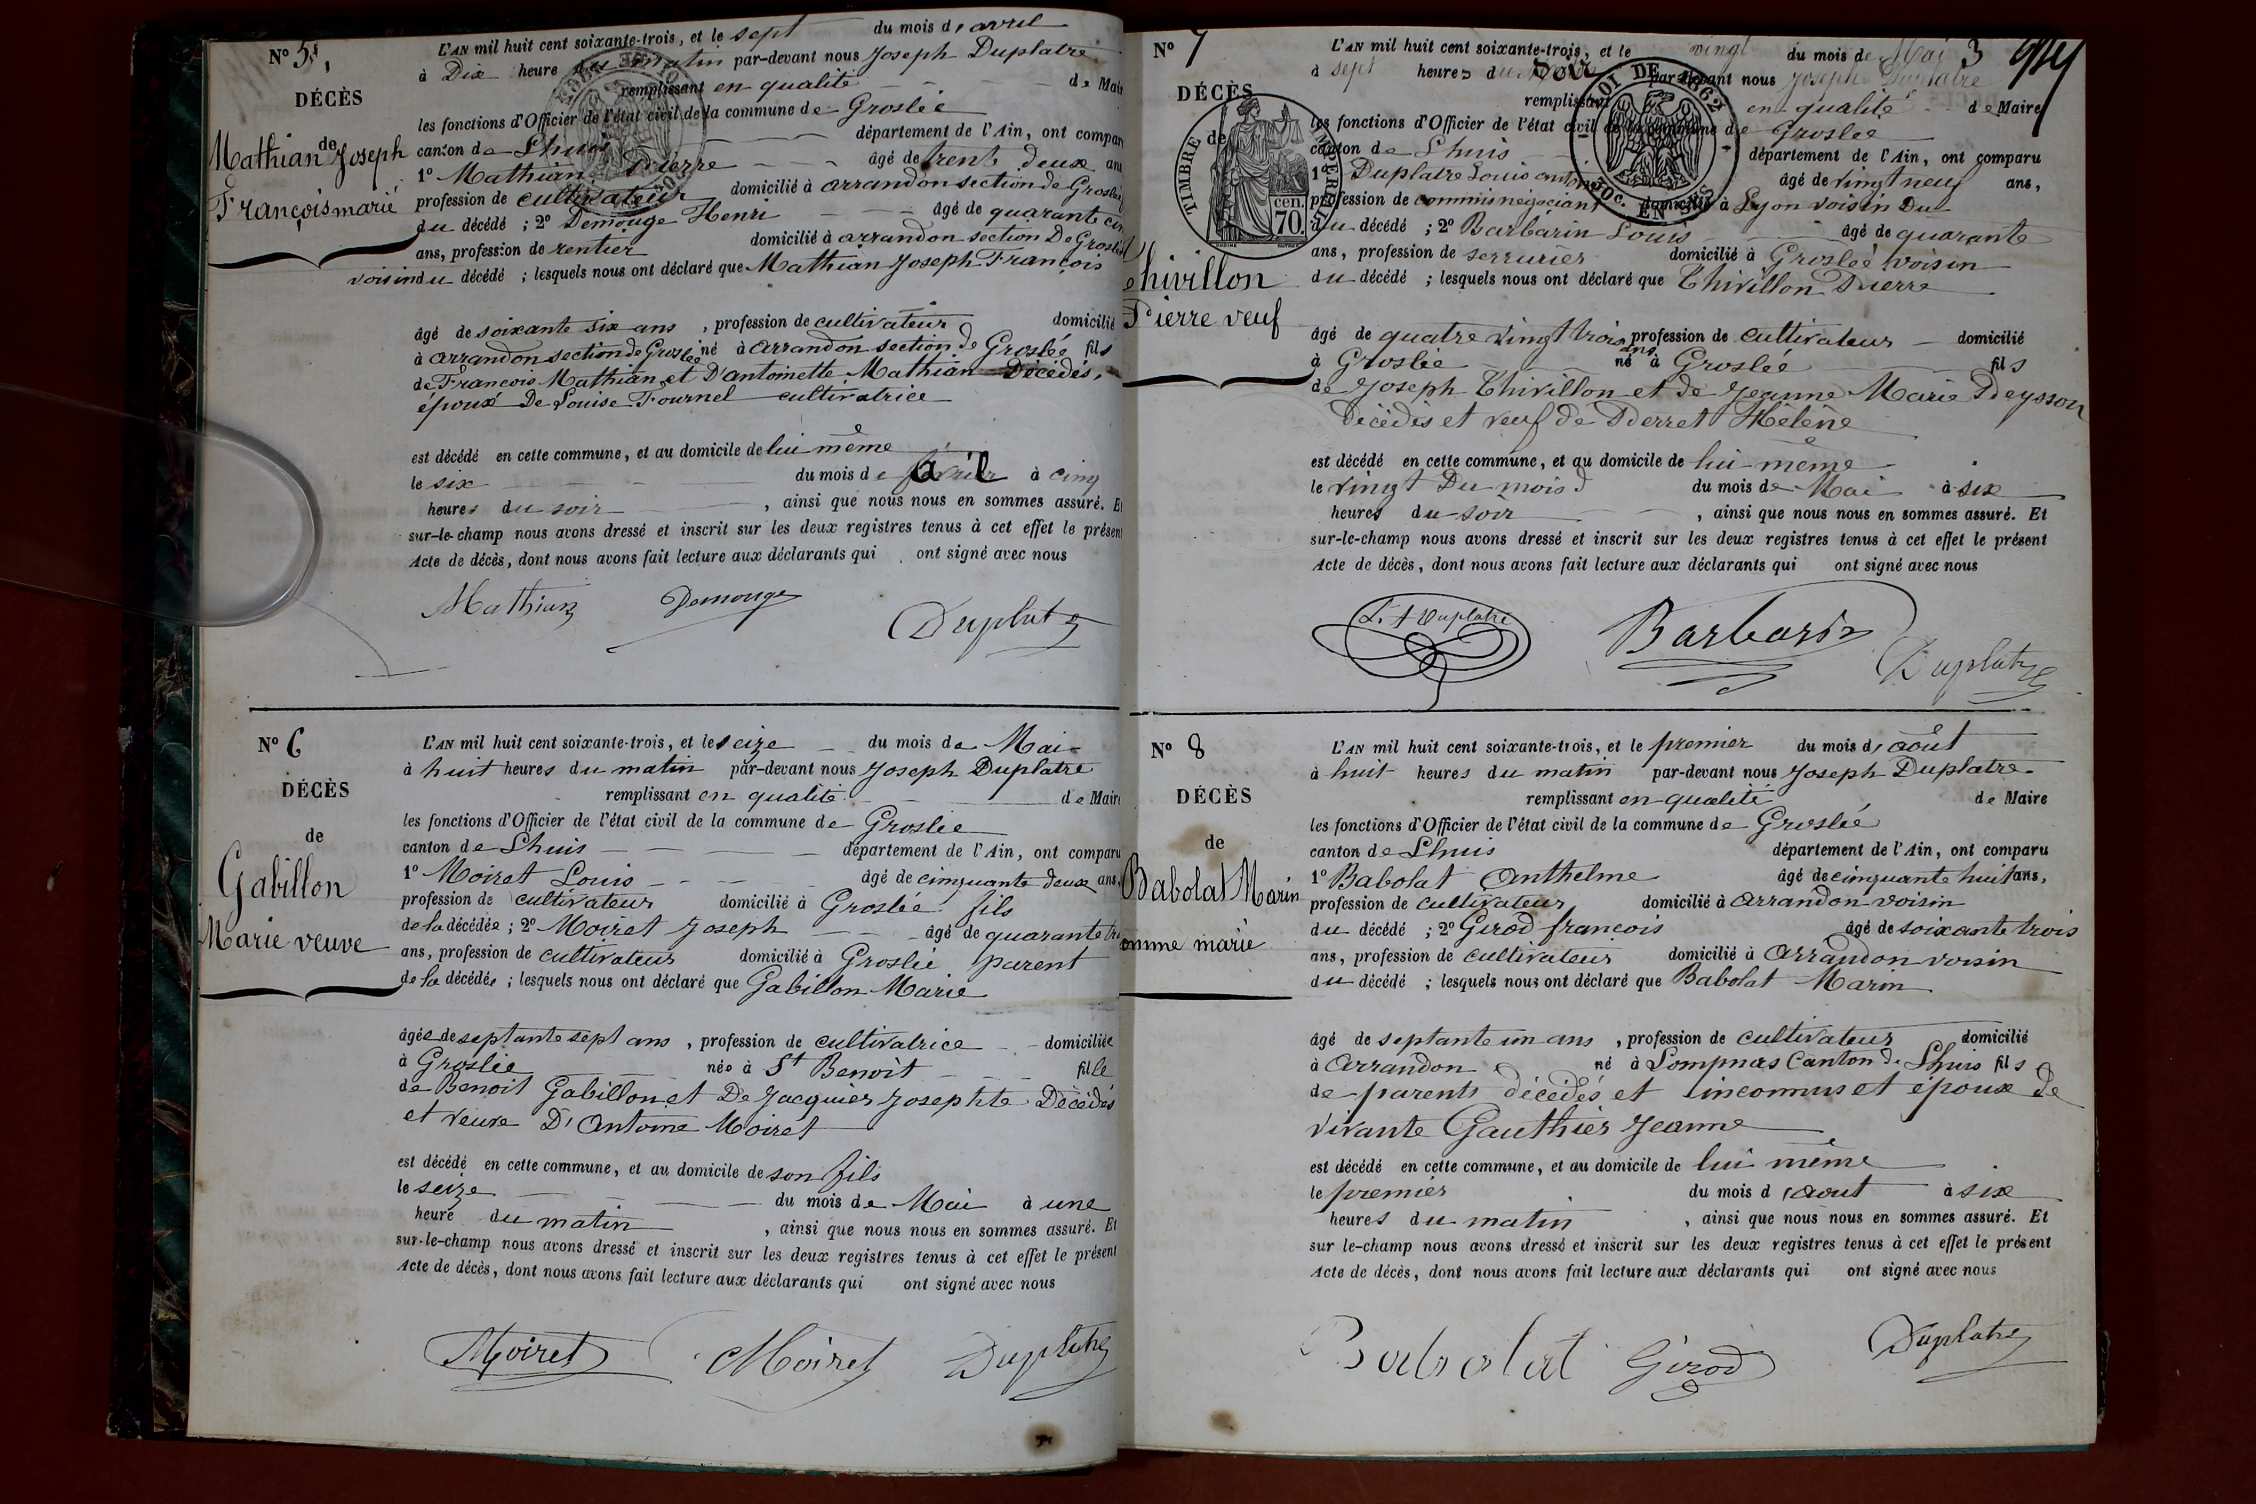 N° 5,
DÉCÈS
de
Mathian Joseph
François marié
L'AN mil huit cent soixante-trois, et le sept du mois d'avril
à Dix heure du matin par-devant nous Joseph Duplatre
remplissant en qualité de Mair
les fonctions d'Officier de l'état civil de la commune de Groslée
canton de Lhuis département de l'Ain, ont compar
1° Mathian Pierre âgé de trente deux ans
profession de cultivateur domicilié à arrandon section de Groslée
du décédé ; 2° Demouge Henri âgé de quarante cin
ans, profession de rentier domicilié à arrandon section De Groslée
voisin du décédé ; lesquels nous ont déclaré que Mathian Joseph François
âgé de soixante six ans , profession de cultivateur domicilié
à arrandon section de Groslée né à arrandon section de Groslée fils
de François Mathian et D'antoinette Mathian Décédés,
époux De Louise Fournel cultivatrice
est décédé en cette commune, et au domicile de lui même
le six du mois de avril à cinq
heures du soir , ainsi que nous nous en sommes assuré. Et
sur-le-champ nous avons dressé et inscrit sur les deux registres tenus à cet effet le présent
Acte de décès, dont nous avons fait lecture aux déclarants qui ont signé avec nous
Mathian Demouge Duplatre
N° 6
DÉCÈS
de
Gabillon
Marie veuve
L'AN mil huit cent soixante-trois, et le seize du mois de Mai
à huit heures du matin par-devant nous Joseph Duplatre
remplissant en qualité de Maire
les fonctions d'Officier de l'état civil de la commune de Groslée
canton de Lhuis département de l'Ain, ont comparu
1° Moiret Louis âgé de cinquante deux ans,
profession de cultivateur domicilié à Groslée fils
de la décédée ; 2° Moiret Joseph âgé de quarante tr
ans, profession de cultivateur domicilié à Groslée parent
de la décédée ; lesquels nous ont déclaré que Gabillon Marie
âgée de septante sept ans , profession de cultivatrice domiciliée
à Groslée née à St Benoît fille
de Benoit Gabillon et De Jacquier Josephte Décédés
et veuve D'Antoine Moiret
est décédé en cette commune, et au domicile de son fils
le seize du mois de Mai à une
heure du matin , ainsi que nous nous en sommes assuré. Et
sur-le-champ nous avons dressé et inscrit sur les deux registres tenus à cet effet le présent
Acte de décès, dont nous avons fait lecture aux déclarants qui ont signé avec nous
Moiret Moiret Duplatre
N° 7
3
DÉCÈS
de
TIMBRE IMPERIAL
cen.
70.
LOI DE 1862
10c. EN SUS
Thivillon
Pierre veuf
L'AN mil huit cent soixante-trois, et le vingt du mois de Mai
à sept heures du soir par-devant nous Joseph Duplatre
remplissant en qualité de Maire
les fonctions d'Officier de l'état civil de la commune de Groslée
canton de Lhuis département de l'Ain, ont comparu
1° Duplatre Louis antoine âgé de vingt neuf ans,
profession de commis négociant domicilié à Lyon voisin Du
du décédé ; 2° Barbarin Louis âgé de quarante
ans, profession de serrurier domicilié à Groslée voisin
du décédé ; lesquels nous ont déclaré que Thivillon Pierre
âgé de quatre vingt trois ans profession de cultivateur domicilié
à Groslée né à Groslée fils
de Joseph Thivillon et de Jeanne Marie Peysson
Décédés et veuf de Perret Hélène
est décédé en cette commune, et au domicile de lui même
le vingt Du mois d du mois de Mai à six
heures du soir , ainsi que nous nous en sommes assuré. Et
sur-le-champ nous avons dressé et inscrit sur les deux registres tenus à cet effet le présent
Acte de décès, dont nous avons fait lecture aux déclarants qui ont signé avec nous
L. A Duplatre Barbarin Duplatre
N° 8
DÉCÈS
de
Babolat Marin
omme marié
L'AN mil huit cent soixante-trois, et le premier du mois d'août
à huit heures du matin par-devant nous Joseph Duplatre
remplissant en qualité de Maire
les fonctions d'Officier de l'état civil de la commune de Groslée
canton de Lhuis département de l'Ain, ont comparu
1° Babolat Anthelme âgé de cinquante huit ans,
profession de cultivateur domicilié à Arrandon voisin
du décédé ; 2° Girod françois âgé de soixante trois
ans, profession de cultivateur domicilié à Arrandon voisin
du décédé ; lesquels nous ont déclaré que Babolat Marin
âgé de septante un ans , profession de cultivateur domicilié
à Arrandon né à Lompnas Canton de Lhuis fils
de parents décédés et inconnus et époux de
vivante Gauthier Jeanne
est décédé en cette commune, et au domicile de lui même
le premier du mois d'aout à six
heures du matin , ainsi que nous nous en sommes assuré. Et
sur le-champ nous avons dressé et inscrit sur les deux registres tenus à cet effet le présent
Acte de décès, dont nous avons fait lecture aux déclarants qui ont signé avec nous
Babolat Girod Duplatre